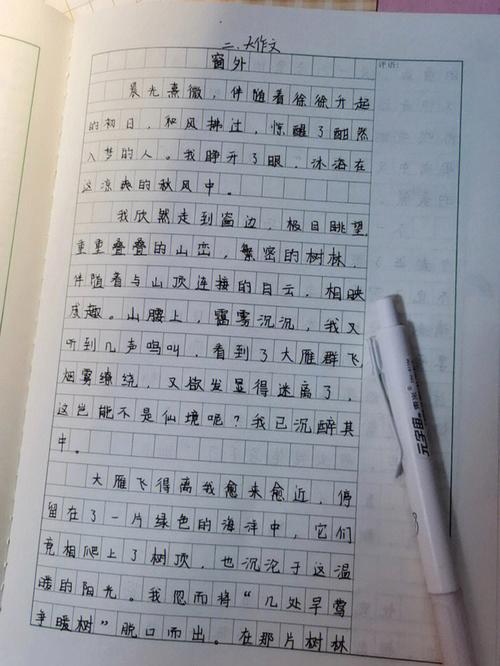 二、大作文
窗外
评语:
晨光熹微，伴随着徐徐升起
的初日，和风拂过，惊醒了酣然
入梦的人。我睁开了眼，沐浴在
这凉爽的秋风中。
我欣然走到窗边，极目眺望，
重重叠叠的山峦，繁密的树林，
伴随着与山顶连接的白云，相映
成趣。山腰上，雷雾沉沉，我又
听到几声鸣叫，看到了大雁群飞，
烟雾缭绕，又欲发显得迷离了，
这岂能不是仙境呢？我已沉醉其
中。
大雁飞得离我愈来愈近，停
留在了一片绿色的海洋中，它们
竞相爬上了树顶，也沉沦于这温
暖的阳光。我忽而将“几处早莺
争暖树”脱口而出。在那片树林
元宇宙